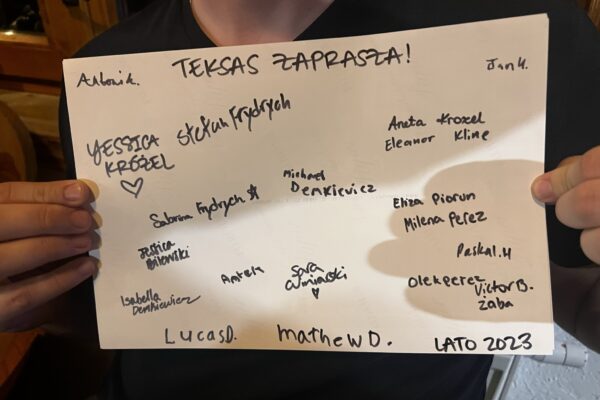 TEKSAS ZAPRASZA!
Antonik.
Jan H.
YESSICA
KROZEL
Stefan Frydrych
Aneta Krozel
Eleanor Kline
Michael
Demkiewicz
Sabrina Frydrych
Eliza Piorun
Milena Perez
Jessica
Paskal.H
Antek
Sara
Winiarski
Olek perez
Victor B.
Żaba
Isabella
Demkiewicz
Lucas D.
Mathew D.
LATO 2023